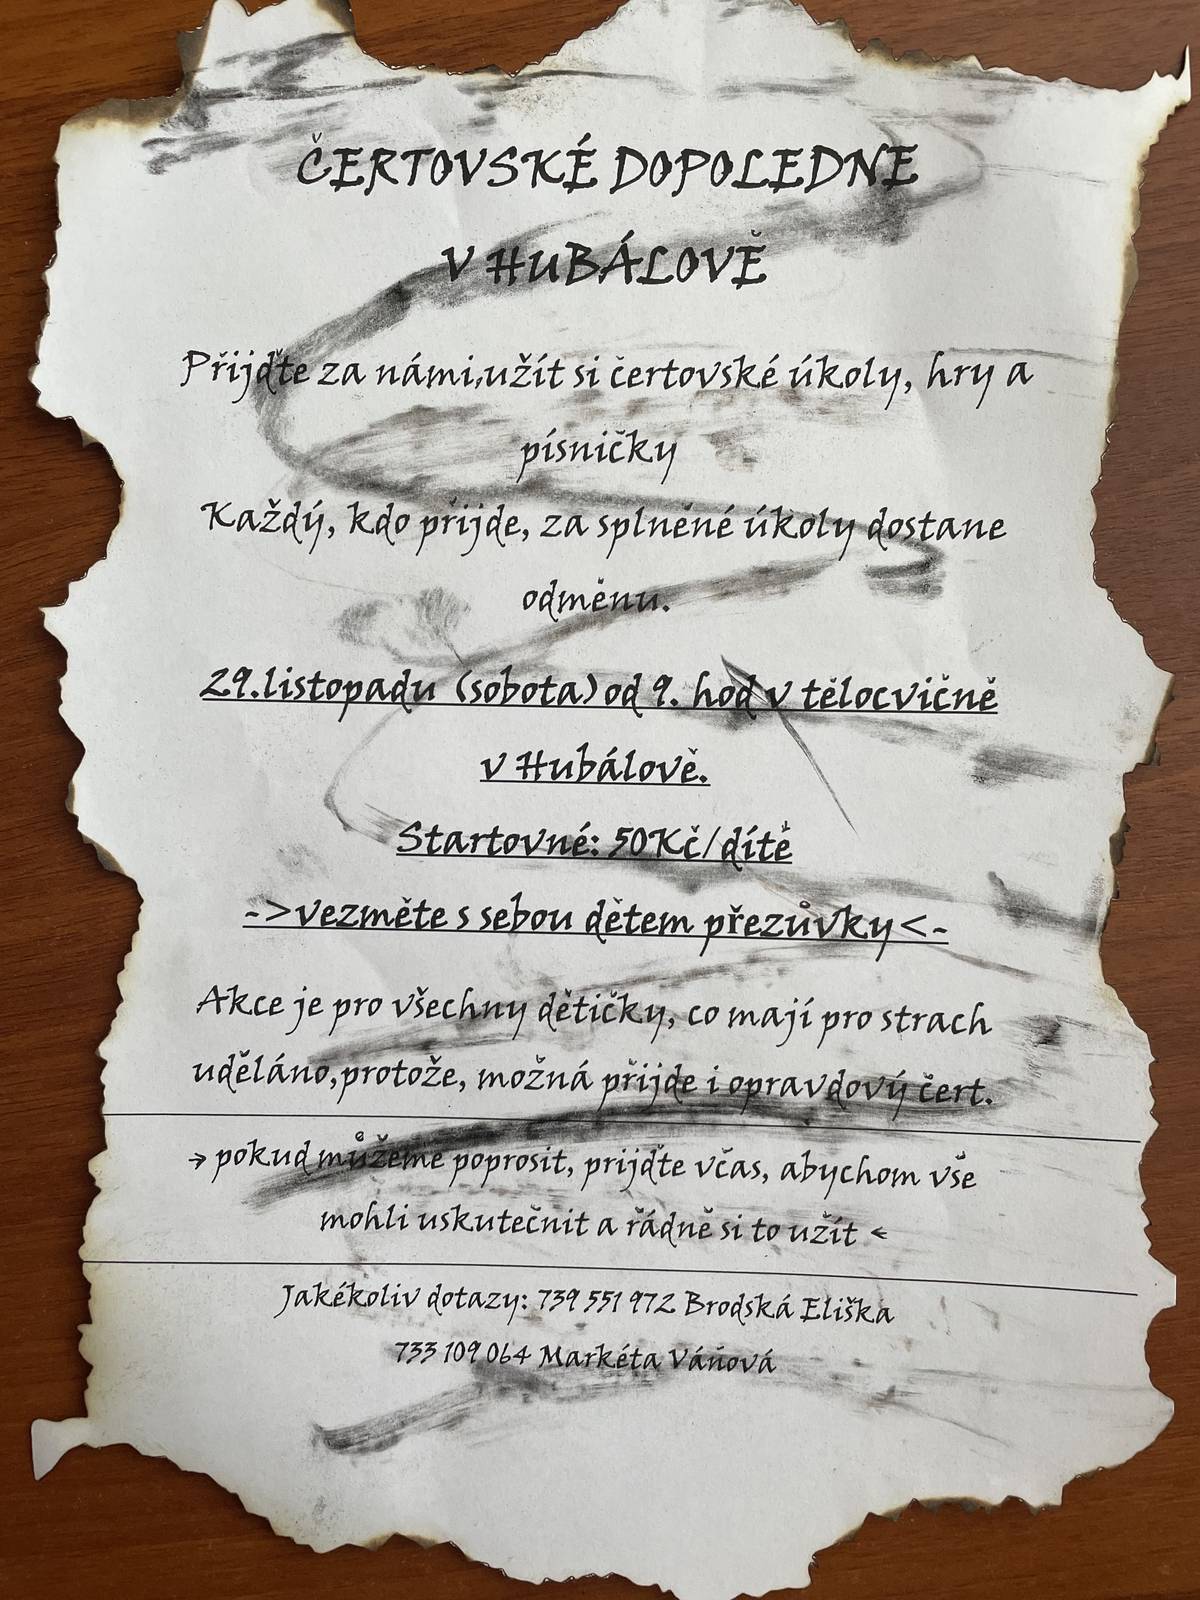 ČERTOVSKÉ DOPOLEDNE
V HUBÁLOVĚ
Přijďte za námi,užít si čertovské úkoly, hry a
písničky
Každý, kdo přijde, za splněné úkoly dostane
odměnu.
29.listopadu (sobota) od 9. hod v tělocvičně
v Hubálově.
Startovné: 50Kč/dítě
->vezměte s sebou dětem přezůvky<-
Akce je pro všechny dětičky, co mají pro strach
uděláno,protože, možná přijde i opravdový čert.
→ pokud můžeme poprosit, prijďte včas, abychom vše
mohli uskutečnit a řádně si to užít ←
Jakékoliv dotazy: 739 551 972 Brodská Eliška
733 109 064 Markéta Váňová